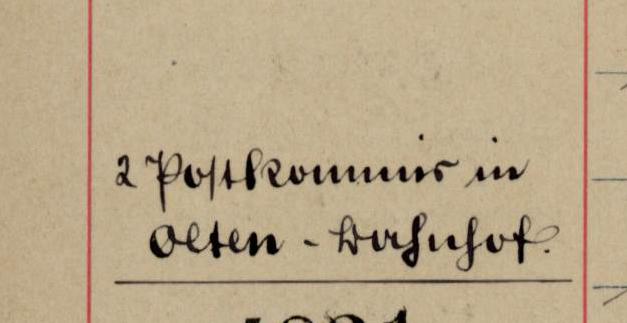 2 Postkommis in
Olten - Bahnhof.